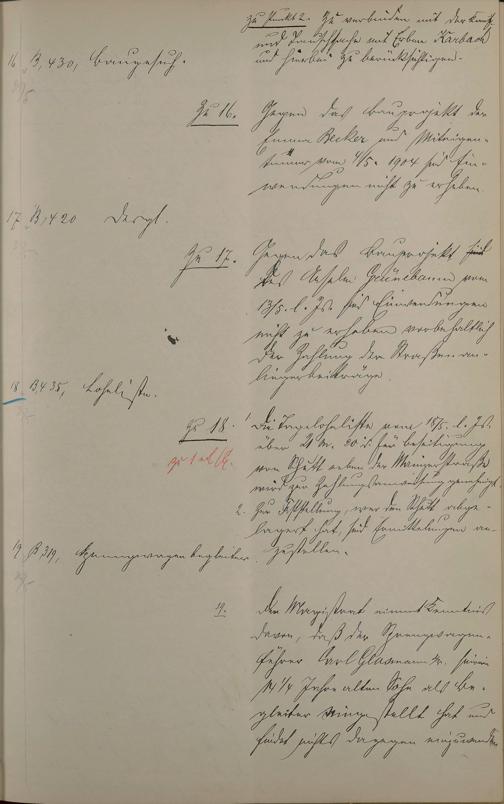 Zu Punkt 2. Zu verbinden mit der Kauf
und Tauschsache mit Erben Karbach
und hierbei zu berücksichtigen.
16 B, 430, Baugesuch.
Zu 16.
Gegen das Bauprojekt der
Emma Becker und Miteigen-
tümer vom 4/5. 1904 sind Ein-
wendungen nicht zu erheben.
17 B, 420 Dergl.
Zu 17.
Gegen das Bauprojekt
des Anselm Grünebaum vom
13/5. l. Js. sind Einwendungen
nicht zu erheben vorbehaltlich
der Zahlung der Straßenan-
liegerbeiträge.
18 B, 435, Lohnliste.
Zu 18.
1 Die Tagelohnliste vom 18/5. l. Js.
über 21 M. 20 für Beseitigung
von Schutt neben der Mainzerstraße
wird zur Zahlungsanweisung genehmigt.
2. Zur Feststellung, wer den Schutt abge-
lagert hat, sind Ermittelungen an-
zustellen.
19 B, 319, Sprengwagenbegleiter.
19.
Der Magistrat nimmt Kenntnis
davon, daß der Sprengwagen-
führer Carl Glasmann seinen
14 1/4 Jahre alten Sohn als Be-
gleiter eingestellt hat und
findet nichts dagegen einzuwenden